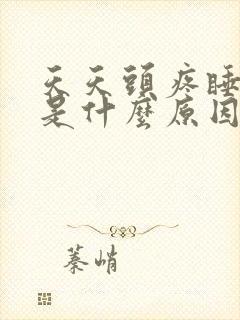 天天頭疼睡
是什麼原因
蓁峭